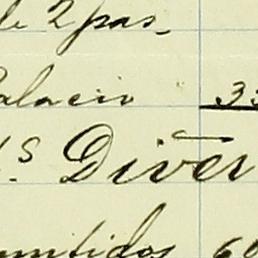 de 2 pas
Palacio 33
s Diver
umtidos 60